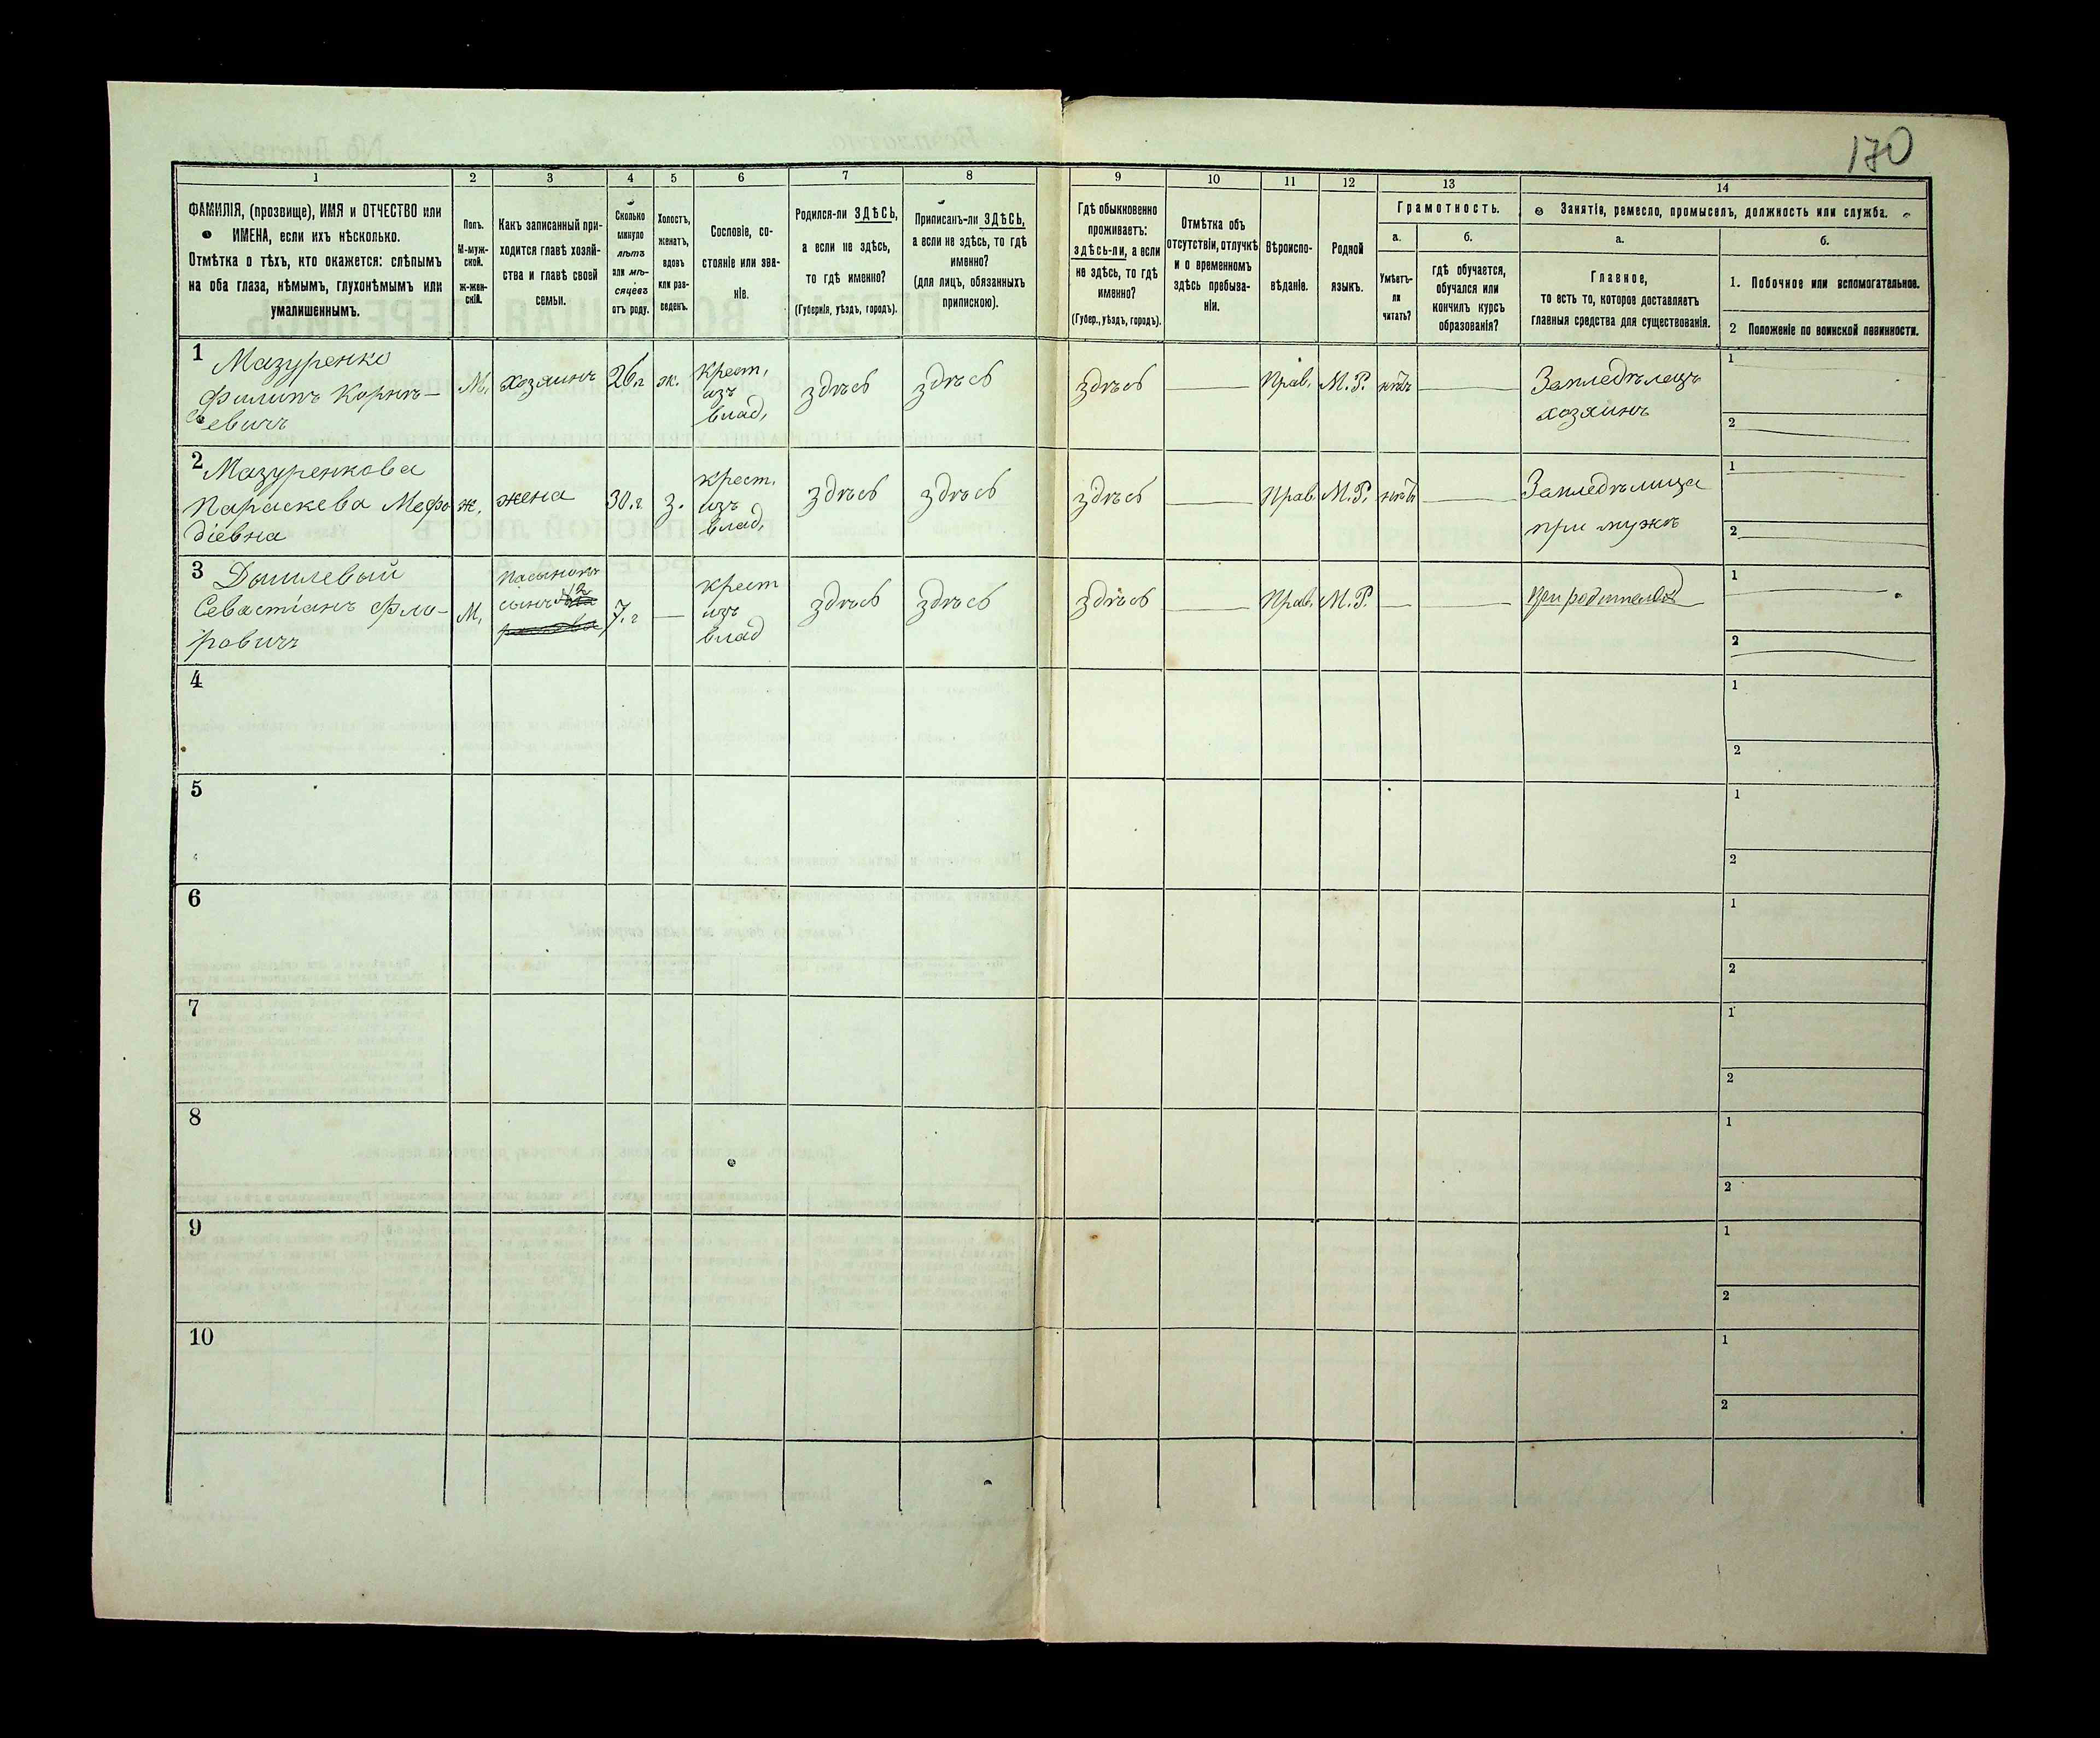 170
1 2 3 4 5 6 7 8 9 10 11 12 13 14
ФАМИЛІЯ, (прозвище), ИМЯ и ОТЧЕСТВО или
ИМЕНА, если ихъ нѣсколько.
Отмѣтка о тѣхъ, кто окажется: слѣпымъ
на оба глаза, нѣмымъ, глухонѣмымъ или
умалишеннымъ.
Полъ.
М-муж-
ской.
ж-жен-
скій.
Какъ записанный при-
ходится главѣ хозяй-
ства и главѣ своей
семьи.
Сколько
минуло
лѣтъ
или мѣ-
сяцевъ
отъ роду.
Холостъ,
женатъ,
вдовъ
или раз-
веденъ.
Сословіе, со-
стояніе или зва-
ніе.
Родился-ли ЗДѢСЬ,
а если не здѣсь,
то гдѣ именно?
(Губернія, уѣздъ, городъ).
Приписанъ-ли ЗДѢСЬ,
а если не здѣсь, то гдѣ
именно?
(для лицъ, обязанныхъ
припискою).
Гдѣ обыкновенно
проживаетъ:
здѣсь-ли, а если
не здѣсь, то гдѣ
именно?
(Губер., уѣздъ, городъ).
Отмѣтка объ
отсутствіи, отлучкѣ
и о временномъ
здѣсь пребыва-
ніи.
Вѣроиспо-
вѣданіе.
Родной
языкъ.
Грамотность.
а.
Умѣетъ-
ли
читать?
б.
гдѣ обучается,
обучался или
кончилъ курсъ
образованія?
Занятіе, ремесло, промыселъ, должность или служба.
а.
Главное,
то есть то, которое доставляетъ
главныя средства для существованія.
б.
1. Побочное или вспомогательное.
2 Положеніе по воинской повинности.
1 Мазуренко
Филипъ Корнѣ-
евичъ
М.
хозяинъ
26.г
ж.
крест.
изъ
влад.
здѣсь
здѣсь
здѣсь
Прав.
М.Р.
нѣтъ
Земледѣлецъ
хозяинъ
1
2
2 Мазуренкова
Параскева Мефо
діевна
ж.
жена
30.г
з.
крест.
изъ
влад.
здѣсь
здѣсь
здѣсь
Прав.
М.Р.
нѣтъ
Земледѣлица
при мужѣ
1
2
3 Дышлевый
Севастіанъ Фло-
ровичъ
М.
пасынокъ
сынъ №2
7.г
крест
изъ
влад
здѣсь
здѣсь
здѣсь
Прав.
М.Р.
при родителяхъ
1
2
4
1
2
5
1
2
6
1
2
7
1
2
8
1
2
9
1
2
10
1
2